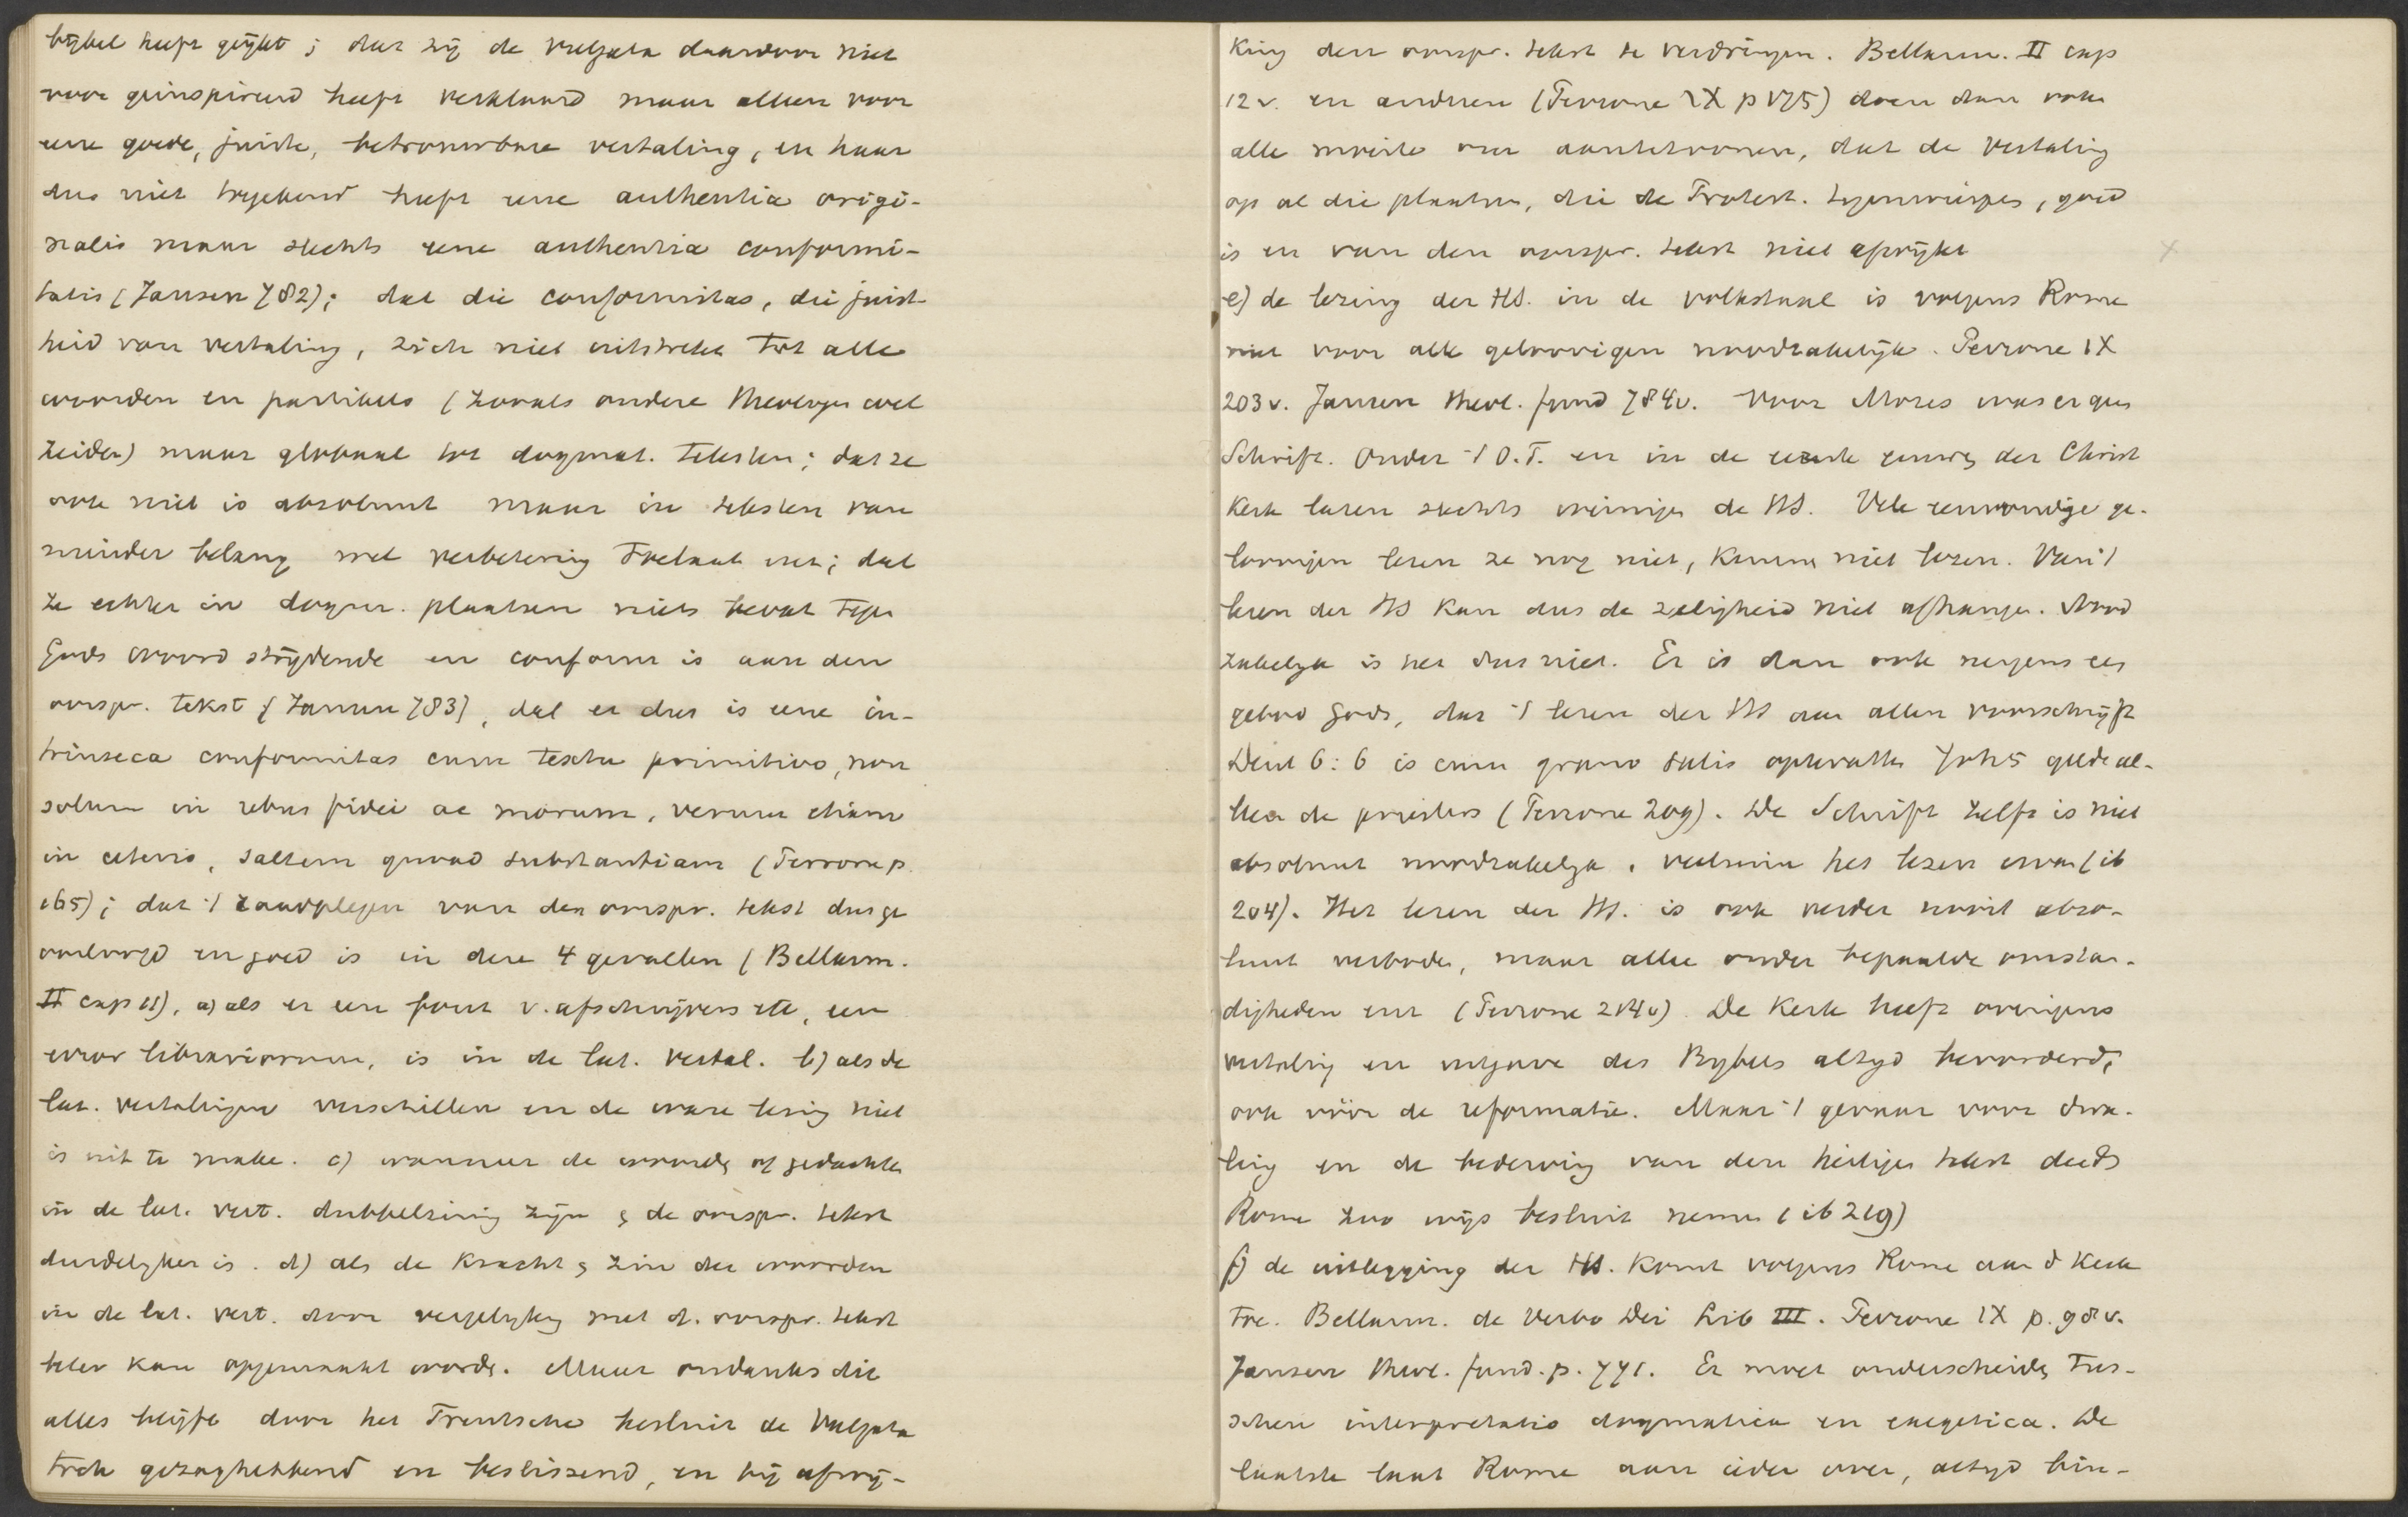 bijbel heeft geijkt; dat zij de vulgata daardoor niet
voor geinspireerd heeft verklaard maar alleen voor
eene goede, juiste, betrouwbare vertaling, en haar
dus niet toegekend heeft eene authentia origi-
nalis maar slechts eene authentia conformi-
tatis (Jansen 782); dat die conformitas, die juist-
heid van vertaling, zich niet uitstrekt tot alle
woorden en partikels (zooals andere theologen wel
zeiden) maar globaal tot dogmat. teksten; dat ze
ook niet is absoluut maar in teksten van
minder belang met verbetering toelaat; dat
ze echter in dogm. plaatsen niets bevat tegen
Gods woord strijdende en conform is aan den
oorspr. tekst (Jansen 783), dat er dus is eene in-
trinseca conformitas cum textu primitivo, non
solum in rebus fidei ac morum, verum etiam
in ceteris, saltem quoad substantiam (Perrone p.
165); dat 't raadplegen van den oorspr. tekst dus ge
oorloofd en goed is in deze 4 gevallen (Bellarm.
II cap 11), a) als er een fout v. afschrijvers etc, een
error librariorum, is in de lat. vertal. b) als de
lat. vertalingen verschillen en de ware lezing niet
is uit te make. c) wanneer de woorden of gedachte
in de lat. vert. dubbelzinnig zijn & de oorspr. tekst
duidelyker is. d) als de kracht & zin der woorden
in de lat. vert. door vergelyking met d. oorspr. tekst
beter kan opgemaakt worde. Maar ondanks dit
alles blijft door het Trentsche besluit de Vulgata
toch gezaghebbend en beslissend, en bij afwij-
king den oorspr. tekst te verdringen. Bellarm. II cap
12 v. en anderen (Perrone IX p 175) doen dan ook
alle moeite om aantetoonen, dat de vertaling
op al die plaatsen, die de Protest. tegenwierpen, goed
is en van den oorspr. tekst niet afwijkt
e) de lezing der HS. in de volkstaal is volgens Rome
niet voor alle geloovigen noodzakelijk. Perrone IX
203 v. Jansen theol. fund 784v. Voor Mozes was er geen
Schrift. Onder 't O.T. en in de eerste eeuwen der Christ
Kerk lazen slechts weinigen de HS. Vele eenvoudige ge-
loovigen lezen ze nog niet, kunnen niet lezen. Van 't
lezen der HS kan dus de zaligheid niet afhangen. Nood
zakelyk is het dus niet. Er is dan ook nergens een
gebod Gods, dat 't lezen der HS aan allen voorschrijft
Deut 6:6 is cum grano salis optevatten Joh 5 geldt al-
leen de priesters (Perrone 209). De Schrift zelf is niet
absoluut noodzakelyk, veelmin het lezen ervan (ib
204). Het lezen der HS. is ook verder nooit abso-
luut verboden, maar alleen onder bepaalde omstan-
digheden enz (Perrone 214v). De Kerk heeft overigens
vertaling en uitgave des Bybels altyd bevorderd,
ook vóór de reformatie. Maar 't gevaar voor dwa-
ling en de bederving van den heiligen tekst deed
Rome zoo wijs besluit nemen (ib 219)
f) de uitlegging der HS. komt volgens Rome aan d Kerk
toe. Bellarm. de Verbo Dei Lib III. Perrone IX p. 98 v.
Jansen theol. fund. p. 771. Er moet onderscheiden tus-
schen interpretatio dogmatica en exegetica. De
laatste laat Rome aan ieder over, altyd bin-